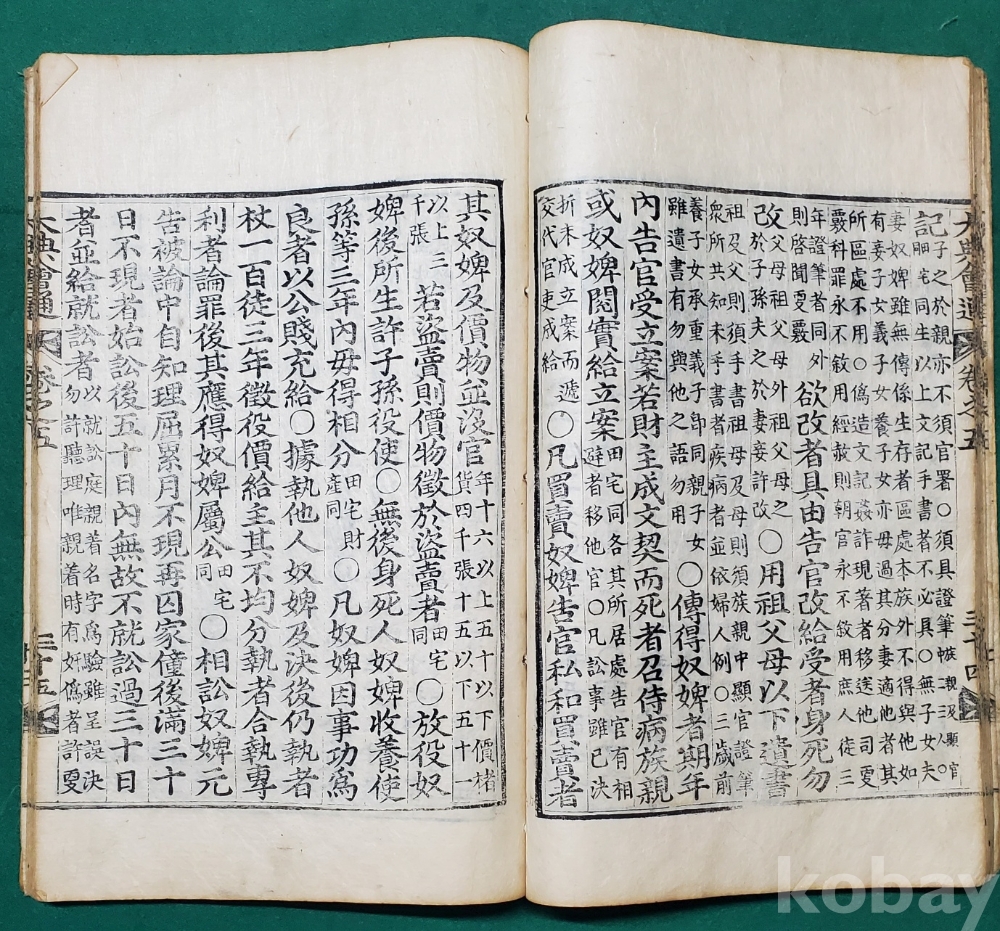 大典會通 卷之五 三十四
記
子之於親亦不須官署〇須具證筆
同生以上文記手書者不必具〇無子女夫
妻奴婢雖無傳係生存者區處本族外不得與他如
有妾子女義子女養子女亦毋過其分妻適他者其
所區處不用〇僞造文記姦詐現著者移送他司更
覈科罪永不敍用經赦則朝官永不敍用庶人徒三
年證筆者同外
則啓聞更覈
欲改者具由告官改給受者身死勿
改
父於子孫夫之於妻許改
祖父母外祖父母之
〇用祖父母以下遺書
祖及父則須手書祖母及母則須族中顯官證筆
衆所共知未手書者疾病者並依婦人例〇三歲前
養子子女重義子卽同親子女
雖遺書有勿與他之語勿用
〇傳得奴婢者期年
內告官受立案若財主成文契而死者召侍病族親
或奴婢閱實給立案
田宅同各其所居處告官有相
避者移他官〇凡訟事雖已決
折未成立案而遞
交代官吏成給
〇凡買賣奴婢告官私和買賣者
其奴婢及價物並沒官
年十六以上五十以下價楮
貨四千張十五以下五十
以上三
千張
若盜賣則價物徵於盜賣者
田宅
同
〇放役奴
婢後所生許子孫役使〇無後身死人奴婢收養使
孫等三年內毋得相分
田宅財
產同
〇凡奴婢因事功爲
良者以公賤充給〇據執他人奴婢及決後仍執者
杖一百徒三年徵役價給主其不均分執者合執專
利者論罪後其應得奴婢屬公
田宅
同
〇相訟奴婢元
告被論中自知理屈累月不現再囚家僮後滿三十
日不現者始訟後五十日內無故不就訟過三十日
者並給就訟者
以就訟庭親着名字爲驗雖呈誤決
勿許聽理唯親着時有奸僞者許更
大典會通 卷之五
三十五